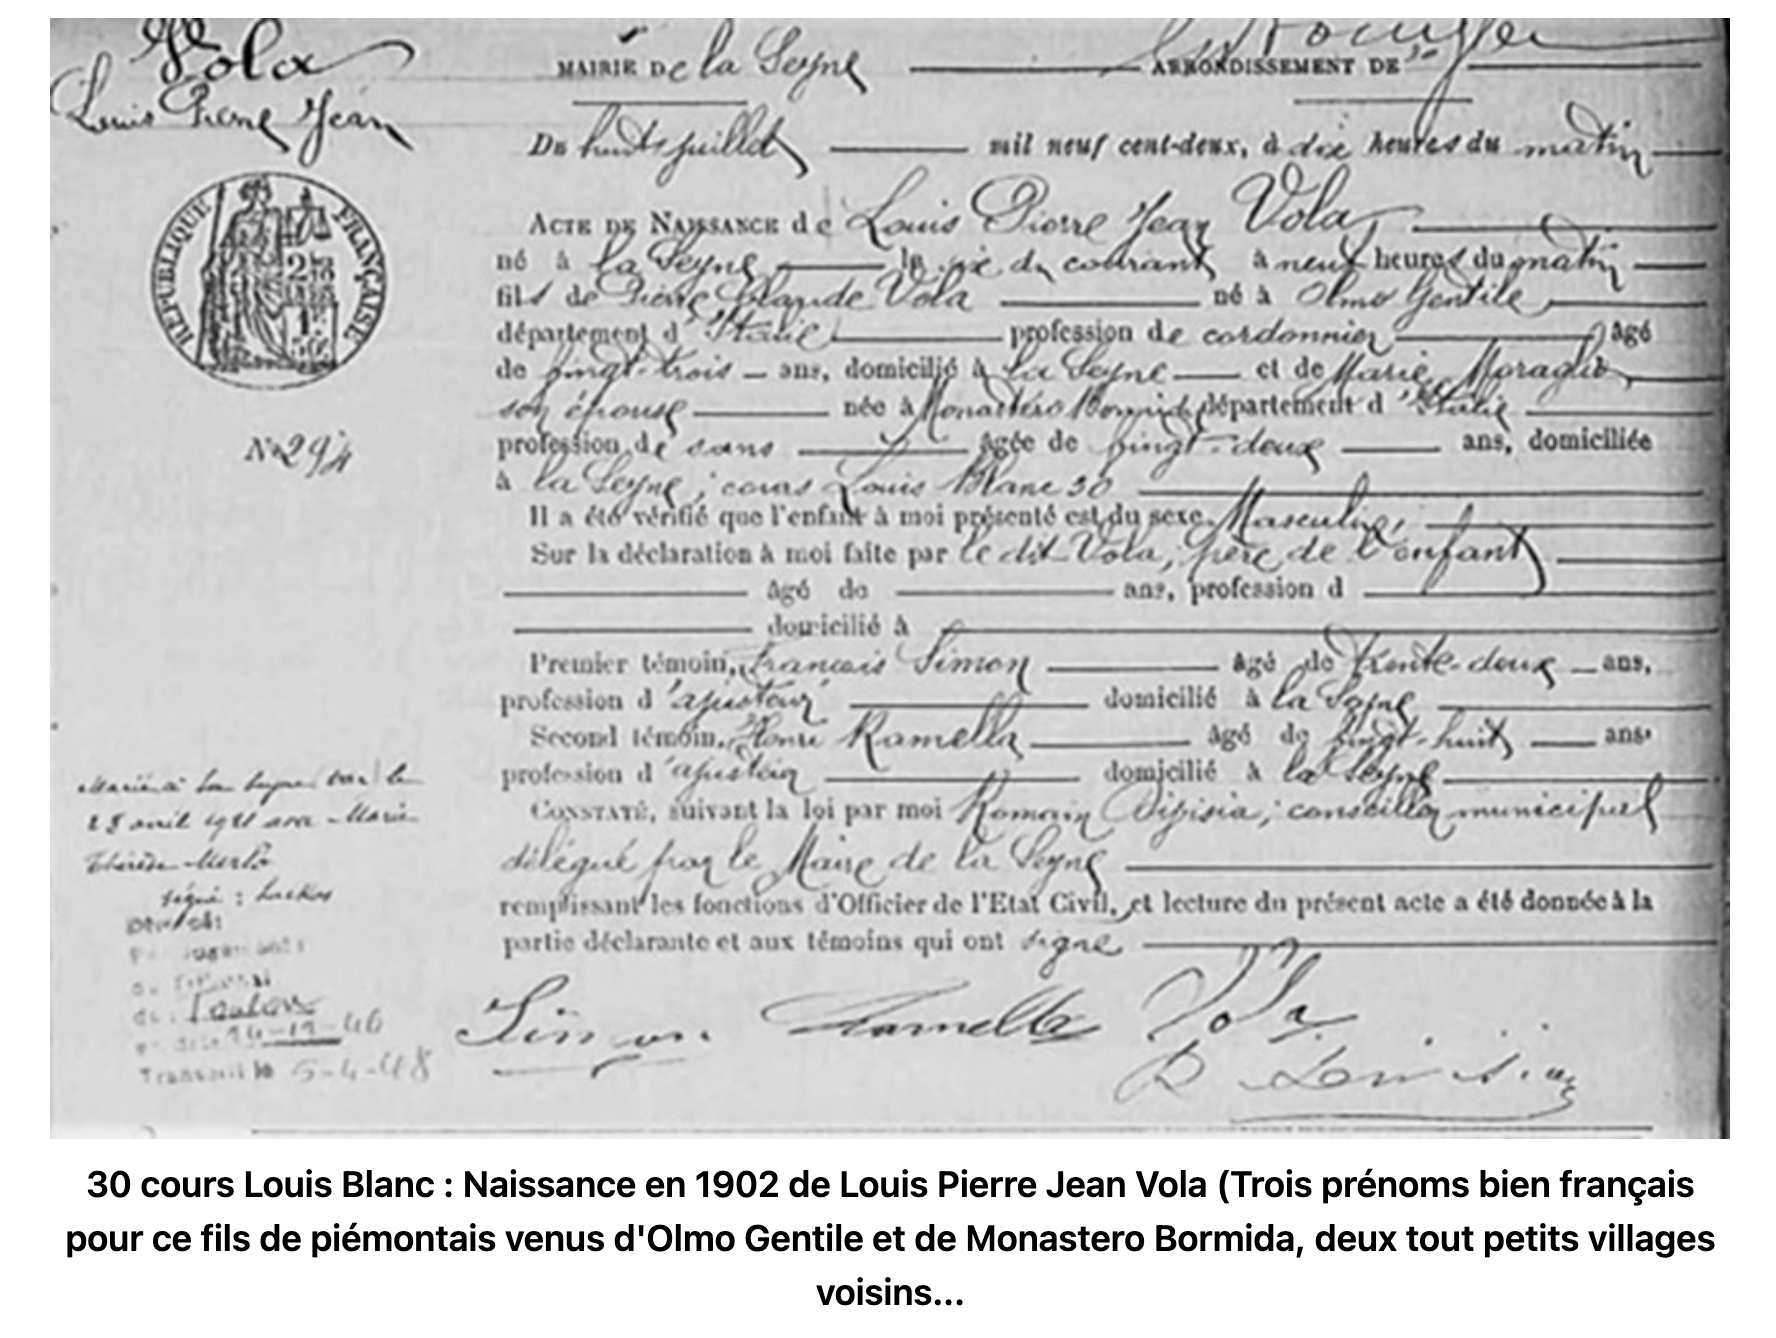 Vola
Louis Pierre Jean
MAIRIE De la Seyne ARRONDISSEMENT DE
Du huit juillet mil neuf cent-deux, à dix heures du matin
RÉPUBLIQUE FRANÇAISE
ACTE DE NAISSANCE de Louis Pierre Jean Vola
né à la Seyne le six du courant à neuf heures du matin
fils de Pierre Claude Vola né à Olmo Gentile
département d'Italie profession de cordonnier âgé
de vingt-trois ans, domicilié à la Seyne et de Marie Moraglio
son épouse née à Monastero Bormida département d'Italie
No 294
profession de sans âgée de vingt-deux ans, domiciliée
à la Seyne; cours Louis Blanc 30
Il a été vérifié que l'enfant à moi présenté est du sexe Masculin,
Sur la déclaration à moi faite par le dit Vola, père de l'enfant
âgé de ans, profession d
domicilié à
Premier témoin, Francois Simon âgé de trente-deux ans,
profession d'ajusteur domicilié à la Seyne
Second témoin, Henri Ramella âgé de vingt-huit ans
profession d'ajusteur domicilié à la Seyne
CONSTATÉ, suivant la loi par moi Romain conseiller municipal
délégué par le Maire de la Seyne
remplissant les fonctions d'Officier de l'Etat Civil, et lecture du présent acte a été donnée à la
partie déclarante et aux témoins qui ont signé
Marié à la Seyne Var le
avril avec Marie
Thérèse Merlo
signé :
de Toulon
Transcrit le 5-4-48
Simon Ramella Vola
30 cours Louis Blanc : Naissance en 1902 de Louis Pierre Jean Vola (Trois prénoms bien français
pour ce fils de piémontais venus d'Olmo Gentile et de Monastero Bormida, deux tout petits villages
voisins...